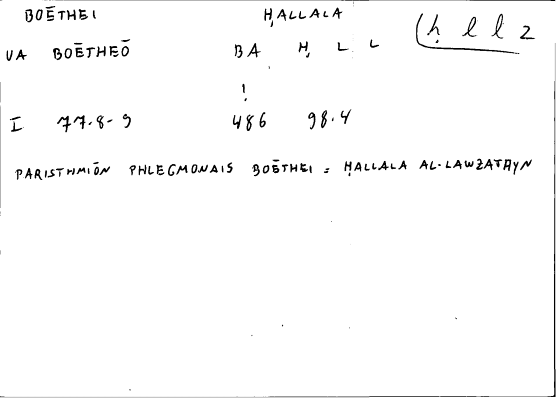 BOĒTHEI ḤALLALA (ḥ l l 2
VA BOĒTHEŌ BA Ḥ L L
!
I 77.8-9 486 98.4
PARISTHMIŌN PHLEGMONAIS BOĒTHEI = ḤALLALA AL-LAWZATAYN